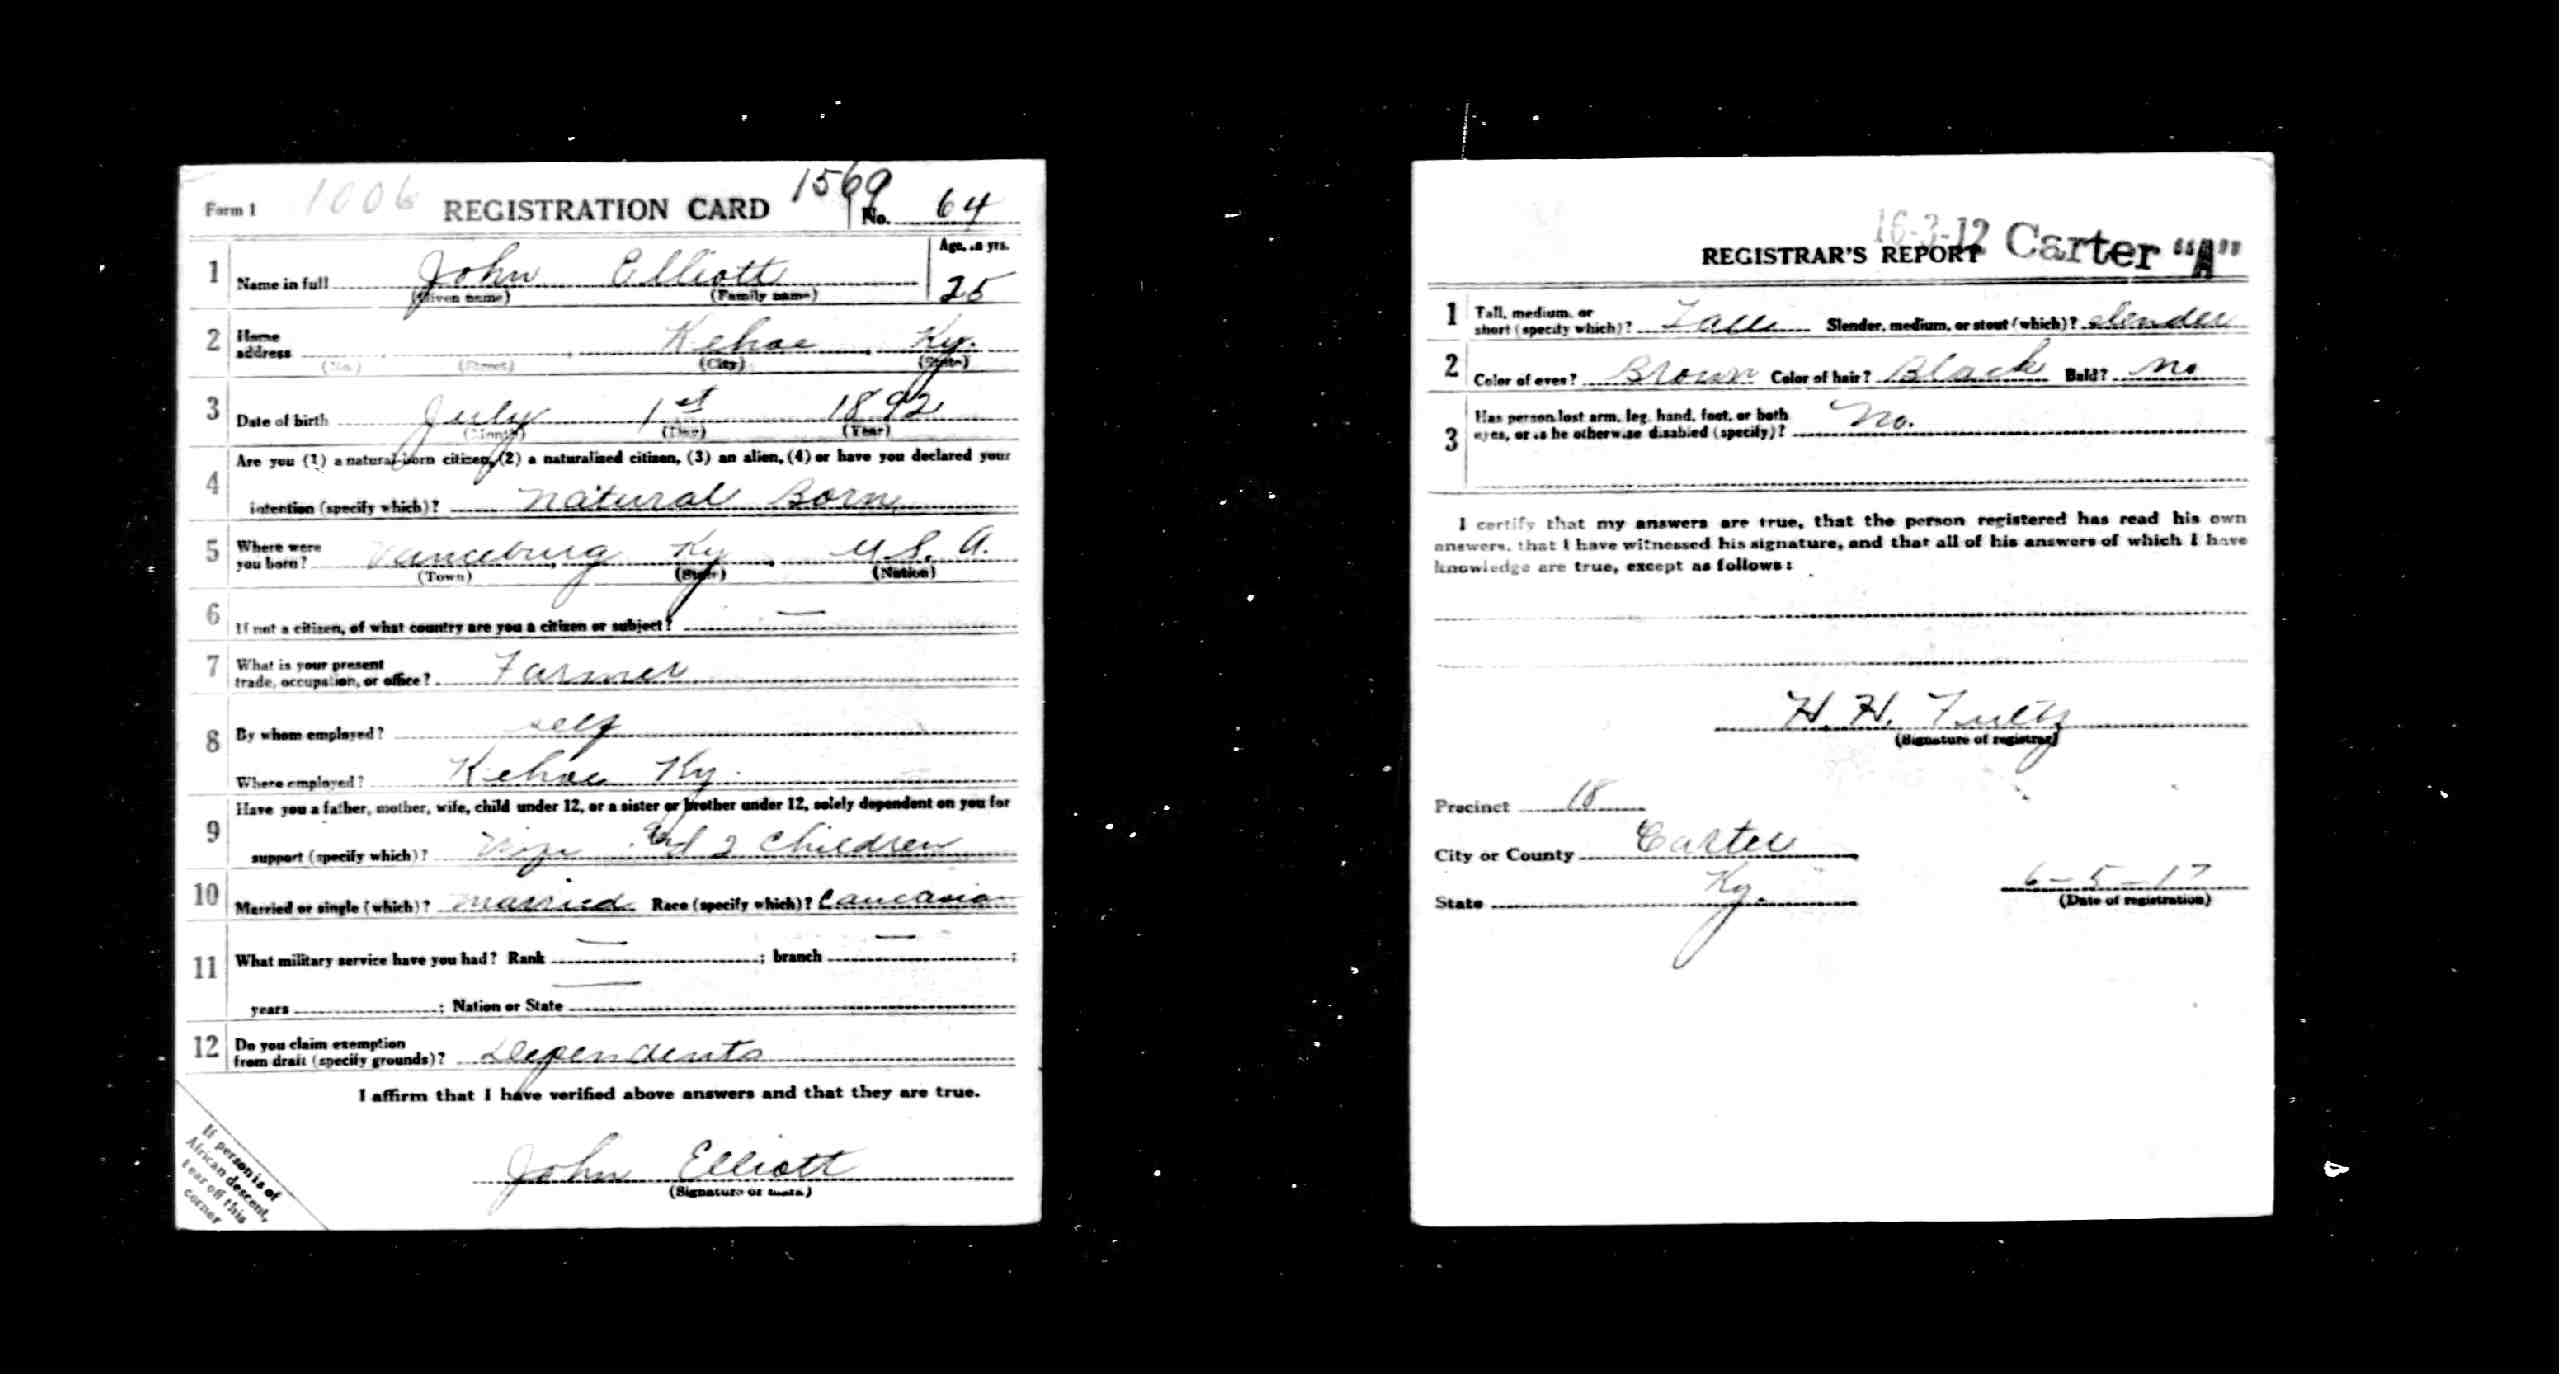 Form 1 1006 REGISTRATION CARD 1569 No. 64
1 Name in full John Elliott Age, in yrs. 25
(Given name) (Family name)
2 Home address Kehoe Ky.
(No.) (Street) (City) (State)
3 Date of birth July 1st 1892
(Month) (Day) (Year)
4 Are you (1) a natural-born citizen, (2) a naturalized citizen, (3) an alien, (4) or have you declared your
intention (specify which)? Natural Born
5 Where were you born? Vanceburg Ky U.S.A.
(Town) (State) (Nation)
6 If not a citizen, of what country are you a citizen or subject? —
7 What is your present
trade, occupation, or office? Farmer
8 By whom employed? self
Where employed? Kehoe Ky.
9 Have you a father, mother, wife, child under 12, or a sister or brother under 12, solely dependent on you for
support (specify which)? Wife and 2 Children
10 Married or single (which)? Married Race (specify which)? Caucasia
11 What military service have you had? Rank — ; branch — ;
years ; Nation or State —
12 Do you claim exemption
from draft (specify grounds)? Dependents
I affirm that I have verified above answers and that they are true.
John Elliott
(Signature or mark)
If person is of
African descent,
tear off this
corner
16-3-12 Carter "A"
REGISTRAR'S REPORT
1 Tall, medium, or
short (specify which)? Tall Slender, medium, or stout (which)? Slender
2 Color of eyes? Brown Color of hair? Black Bald? No
3 Has person lost arm, leg, hand, foot, or both
eyes, or is he otherwise disabled (specify)? No.
I certify that my answers are true, that the person registered has read his own
answers, that I have witnessed his signature, and that all of his answers of which I have
knowledge are true, except as follows:
H. H. Fultz
(Signature of registrar)
Precinct 18
City or County Carter
State Ky.
6-5-17
(Date of registration)